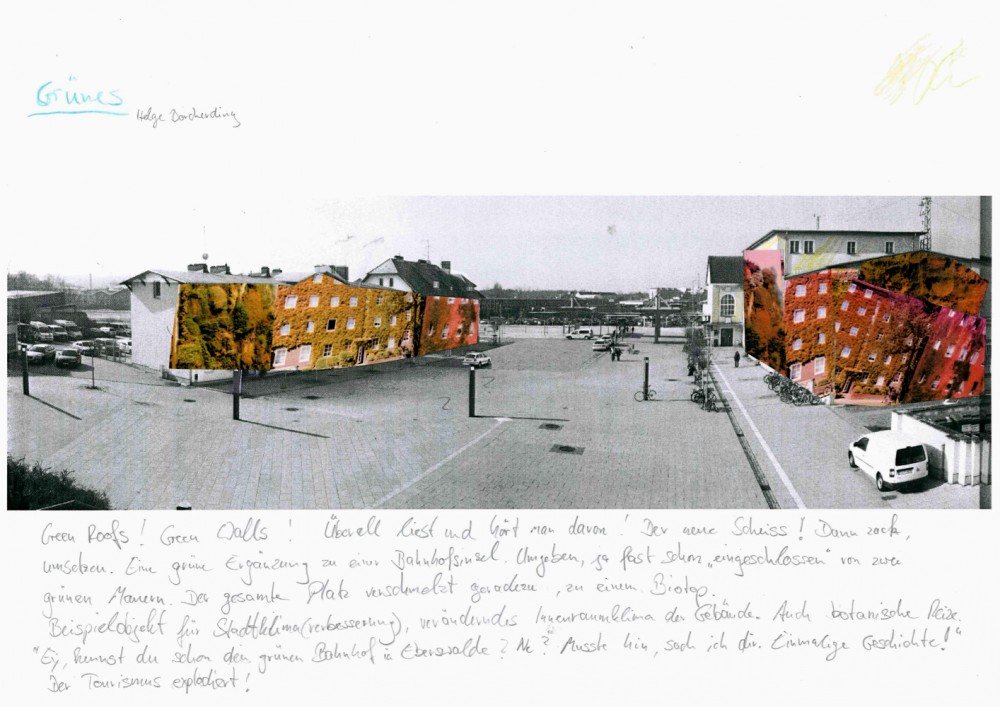 Grünes
Helge Borcherding
Green Roofs! Green Walls! Überall liest und hört man davon! Der neue Scheiss! Dann zack,
umsetzen. Eine grüne Ergänzung zu einer Bahnhofsinsel. Umgeben, ja fast schon „eingeschlossen" von zwei
grünen Mauern. Der gesamte Platz verschmelzt geradezu, zu einem Biotop.
Beispielobjekt für Stadtklima(verbesserung), veränderndes Innenraumklima der Gebäude. Auch botanische Reize.
"Ey, kennst du schon den grünen Bahnhof in Eberswalde? Ne? Musste hin, sach ich dir. Einmalige Geschichte!"
Der Tourismus explodiert!